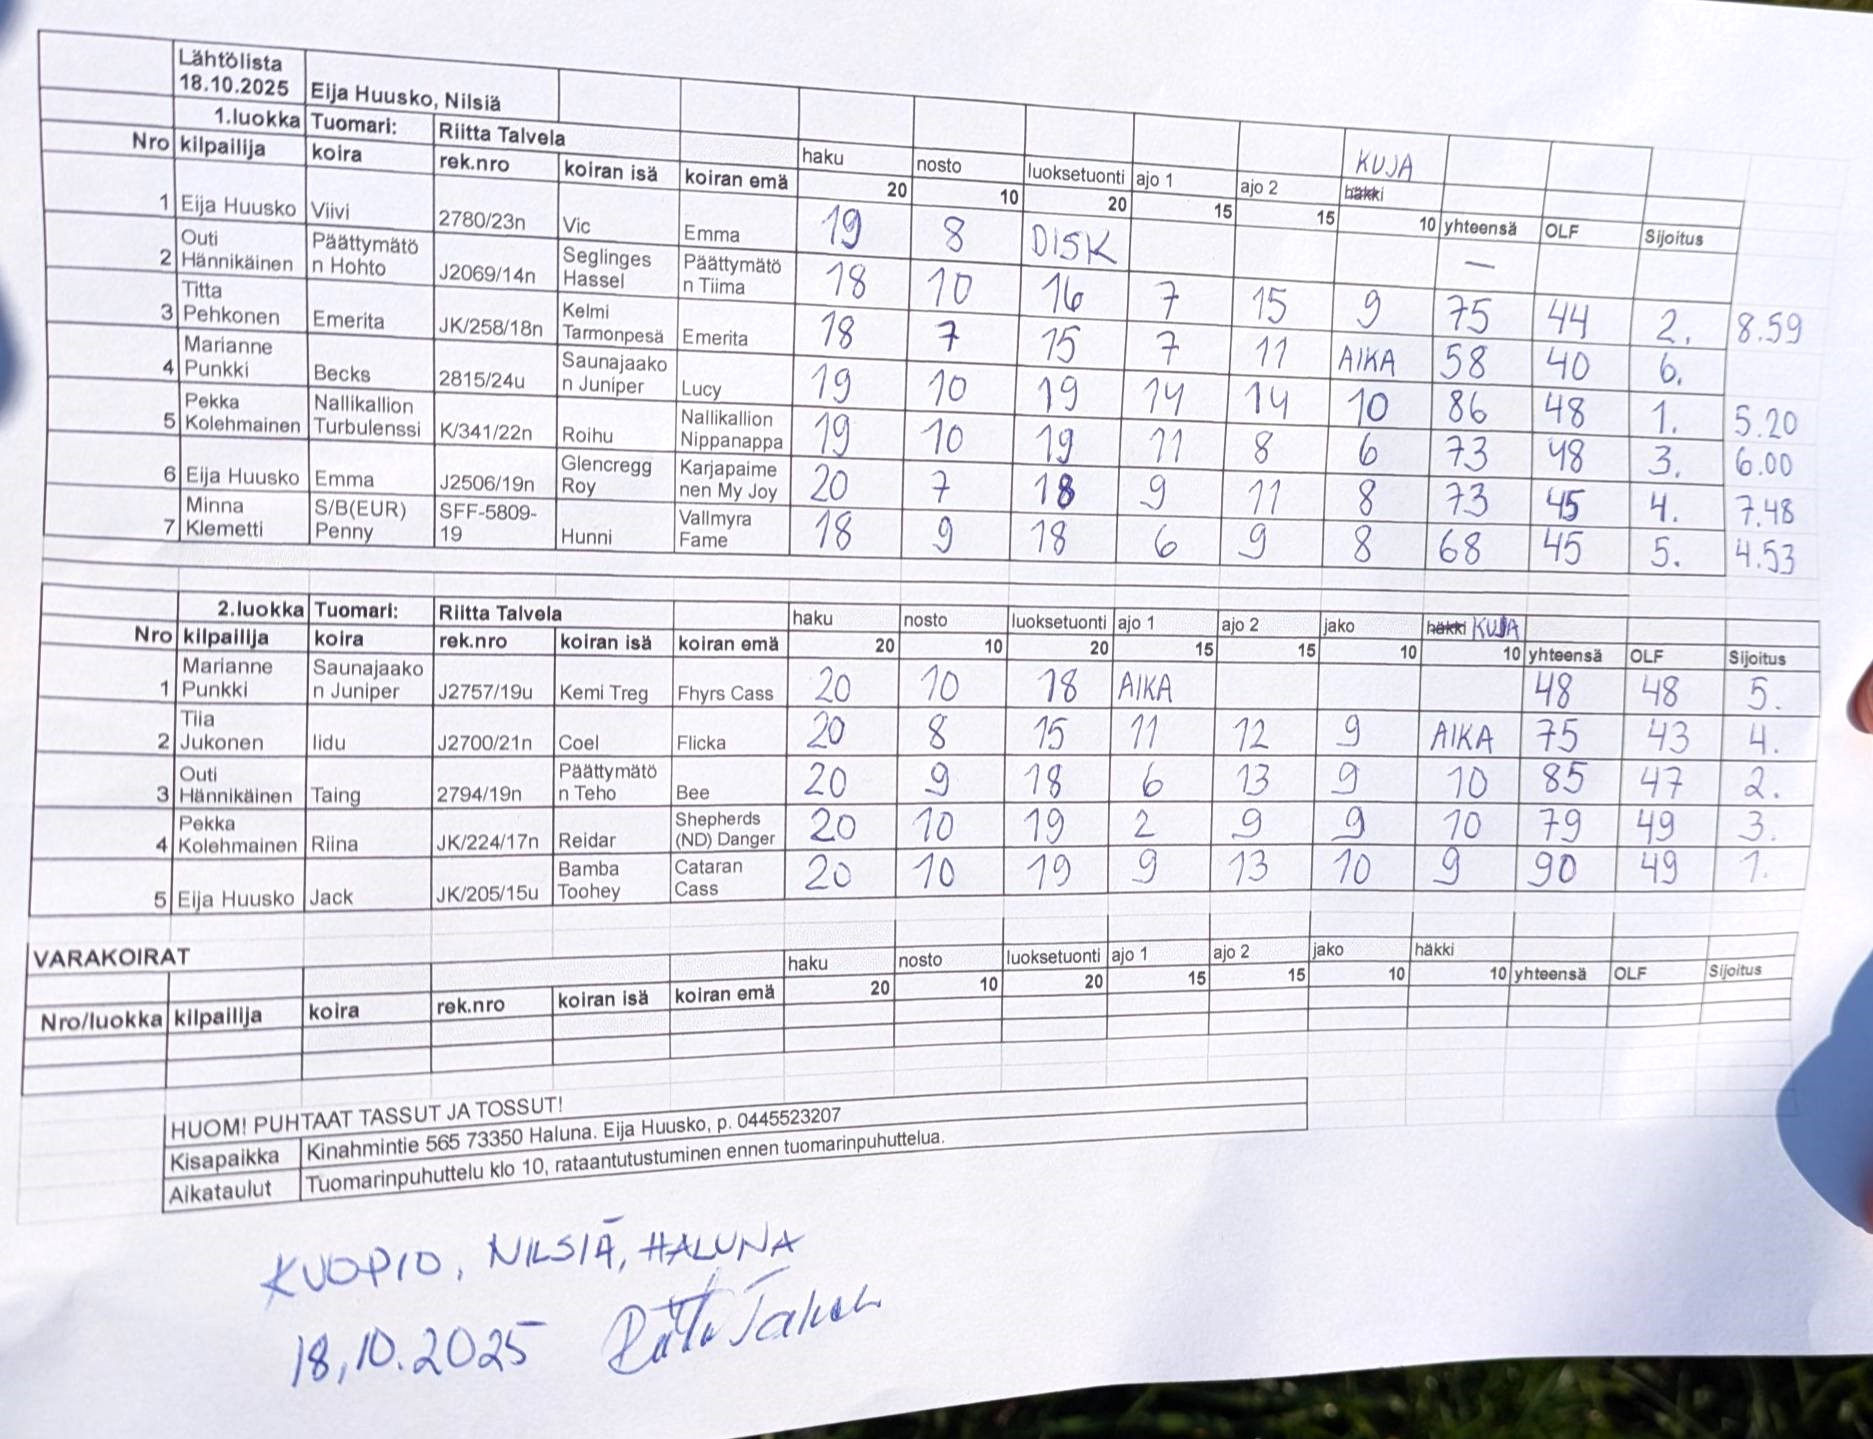 Lähtölista
18.10.2025 Eija Huusko, Nilsiä
1.luokka Tuomari: Riitta Talvela
KUJA
Nro kilpailija koira rek.nro koiran isä koiran emä haku nosto luoksetuonti ajo 1 ajo 2 häkki
20 10 20 15 15 10 yhteensä OLF Sijoitus
1 Eija Huusko Viivi 2780/23n Vic Emma 19 8 DISK —
2 Outi Hännikäinen Päättymätö n Hohto J2069/14n Seglinges Hassel Päättymätö n Tiima 18 10 16 7 15 9 75 44 2. 8.59
3 Titta Pehkonen Emerita JK/258/18n Kelmi Tarmonpesä Emerita 18 7 15 7 11 AIKA 58 40 6.
4 Marianne Punkki Becks 2815/24u Saunajaako n Juniper Lucy 19 10 19 14 14 10 86 48 1. 5.20
5 Pekka Kolehmainen Nallikallion Turbulenssi K/341/22n Roihu Nallikallion Nippanappa 19 10 19 11 8 6 73 48 3. 6.00
6 Eija Huusko Emma J2506/19n Glencregg Roy Karjapaime nen My Joy 20 7 18 9 11 8 73 45 4. 7.48
7 Minna Klemetti S/B(EUR) Penny SFF-5809-19 Hunni Vallmyra Fame 18 9 18 6 9 8 68 45 5. 4.53
2.luokka Tuomari: Riitta Talvela haku nosto luoksetuonti ajo 1 ajo 2 jako häkki KUJA
Nro kilpailija koira rek.nro koiran isä koiran emä 20 10 20 15 15 10 10 yhteensä OLF Sijoitus
1 Marianne Punkki Saunajaako n Juniper J2757/19u Kemi Treg Fhyrs Cass 20 10 18 AIKA 48 48 5.
2 Tiia Jukonen Iidu J2700/21n Coel Flicka 20 8 15 11 12 9 AIKA 75 43 4.
3 Outi Hännikäinen Taing 2794/19n Päättymätö n Teho Bee 20 9 18 6 13 9 10 85 47 2.
4 Pekka Kolehmainen Riina JK/224/17n Reidar Shepherds (ND) Danger 20 10 19 2 9 9 10 79 49 3.
5 Eija Huusko Jack JK/205/15u Bamba Toohey Cataran Cass 20 10 19 9 13 10 9 90 49 1.
VARAKOIRAT haku nosto luoksetuonti ajo 1 ajo 2 jako häkki
20 10 20 15 15 10 10 yhteensä OLF Sijoitus
Nro/luokka kilpailija koira rek.nro koiran isä koiran emä
HUOM! PUHTAAT TASSUT JA TOSSUT!
Kisapaikka Kinahmintie 565 73350 Haluna. Eija Huusko, p. 0445523207
Aikataulut Tuomarinpuhuttelu klo 10, rataantutustuminen ennen tuomarinpuhuttelua.
KUOPIO, NILSIÄ, HALUNA
18,10.2025 Riitta Talvela